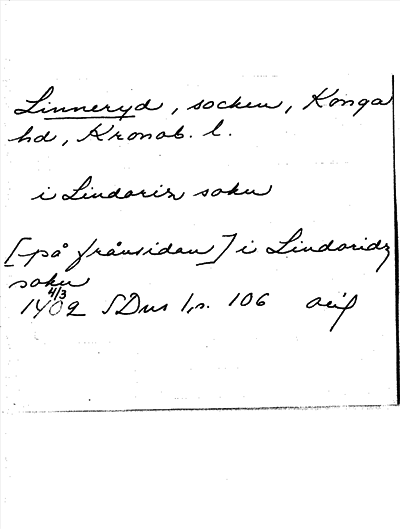 Linneryd, socken, Konga
hd, Kronob. l.
i Lindoriz sokn
[på frånsidan] i Lindoridz
sokn
4/3
1402 SDns 1, s. 106